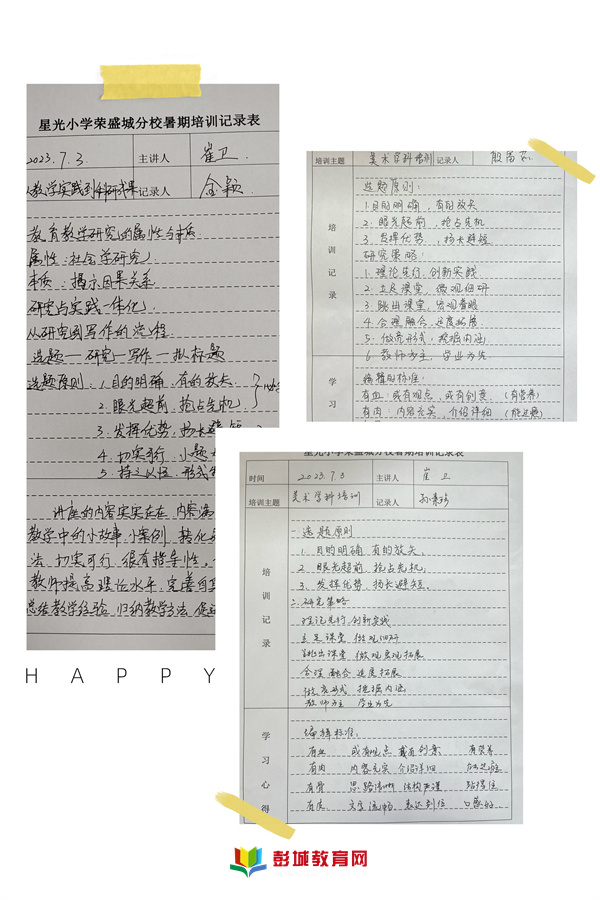 星光小学荣盛城分校暑期培训记录表
2023.7.3. 主讲人 崔卫
教学实践到科研成果 记录人 金颖
教育教学研究的属性与本质
属性:社会学研究
本质:揭示因果关系
研究与实践一体化
从研究到写作的流程
选题—研究—写作—拟标题
选题原则:1.目的明确,有的放矢
2.眼光超前,抢占先机
3.发挥优势,扬长避短
4.切实可行,小题
5.持之以恒,形式
讲座的内容实实在在,内容满
教学中的小故事、小案例,转化
法,切实可行,很有指导性。
教师提高理论水平,完善自
总结教学经验,归纳教学方法,促
HAPPY
培训主题 美术学科培训 记录人
培训记录
选题原则:
1.目的明确,有的放矢
2.眼光超前,抢占先机
3.发挥优势,扬长避短
研究策略:
1.理论先行,创新实践
2.立足课堂,微观细研
3.跳出课堂,宏观着眼
4.合理融合,适度拓展
5.做亮形式,挖掘内涵
6.教师为主,学业为先
学习
编辑的标准:
有血:或有观点,或有创意.(有营养)
有肉:内容充实,介绍详细
星光小学荣盛城分校暑期培训记录表
时间 2023.7.3 主讲人 崔卫
培训主题 美术学科培训 记录人
培训记录
一.选题原则
1.目的明确 有的放矢,
2.眼光超前,抢占先机,
3.发挥优势、扬长避短.
二.研究策略
理论先行,创新实践
立足课堂 微观细研
跳出课堂 微观宏观拓展
合理融合 适度拓展
做亮形式 挖掘内涵
教师为主 学业为先
学习心得
编辑标准:
有血 或有观点 或有创意 有营养
有肉 内容充实 介绍详细
有骨 思路清晰 结构严谨 站得住
文字流畅 表达到位 口感好
彭城教育网